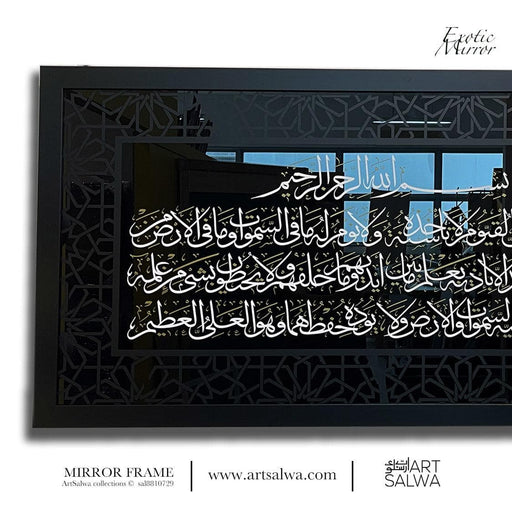 Exotic
Mirror
بسم الله الرحمن الرحيم
القيوم لا تأخذه سنة ولا نوم له ما في السموات وما في الأرض من
إلا بإذنه يعلم ما بين أيديهم وما خلفهم ولا يحيطون بشيء من علمه
السموات والأرض ولا يؤده حفظهما وهو العلي العظيم
MIRROR FRAME
ArtSalwa collections © sal8810729
www.artsalwa.com
ART
SALWA